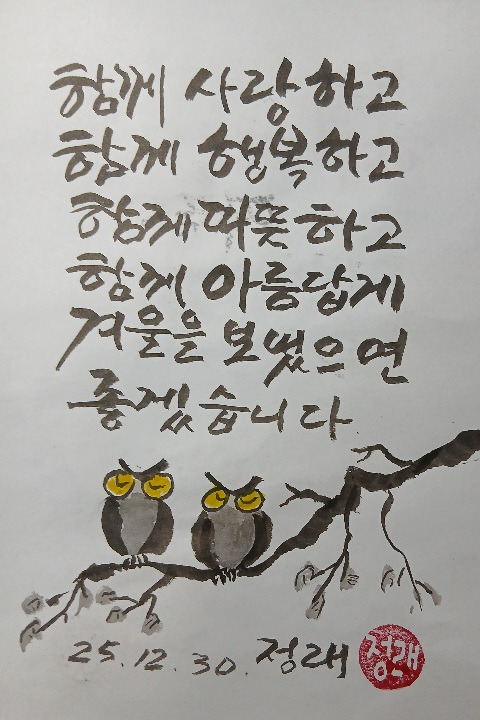 함께 사랑하고
함께 행복하고
함께 따뜻하고
함께 아름답게
겨울을 보냈으면
좋겠습니다
25.12.30. 정래
정래